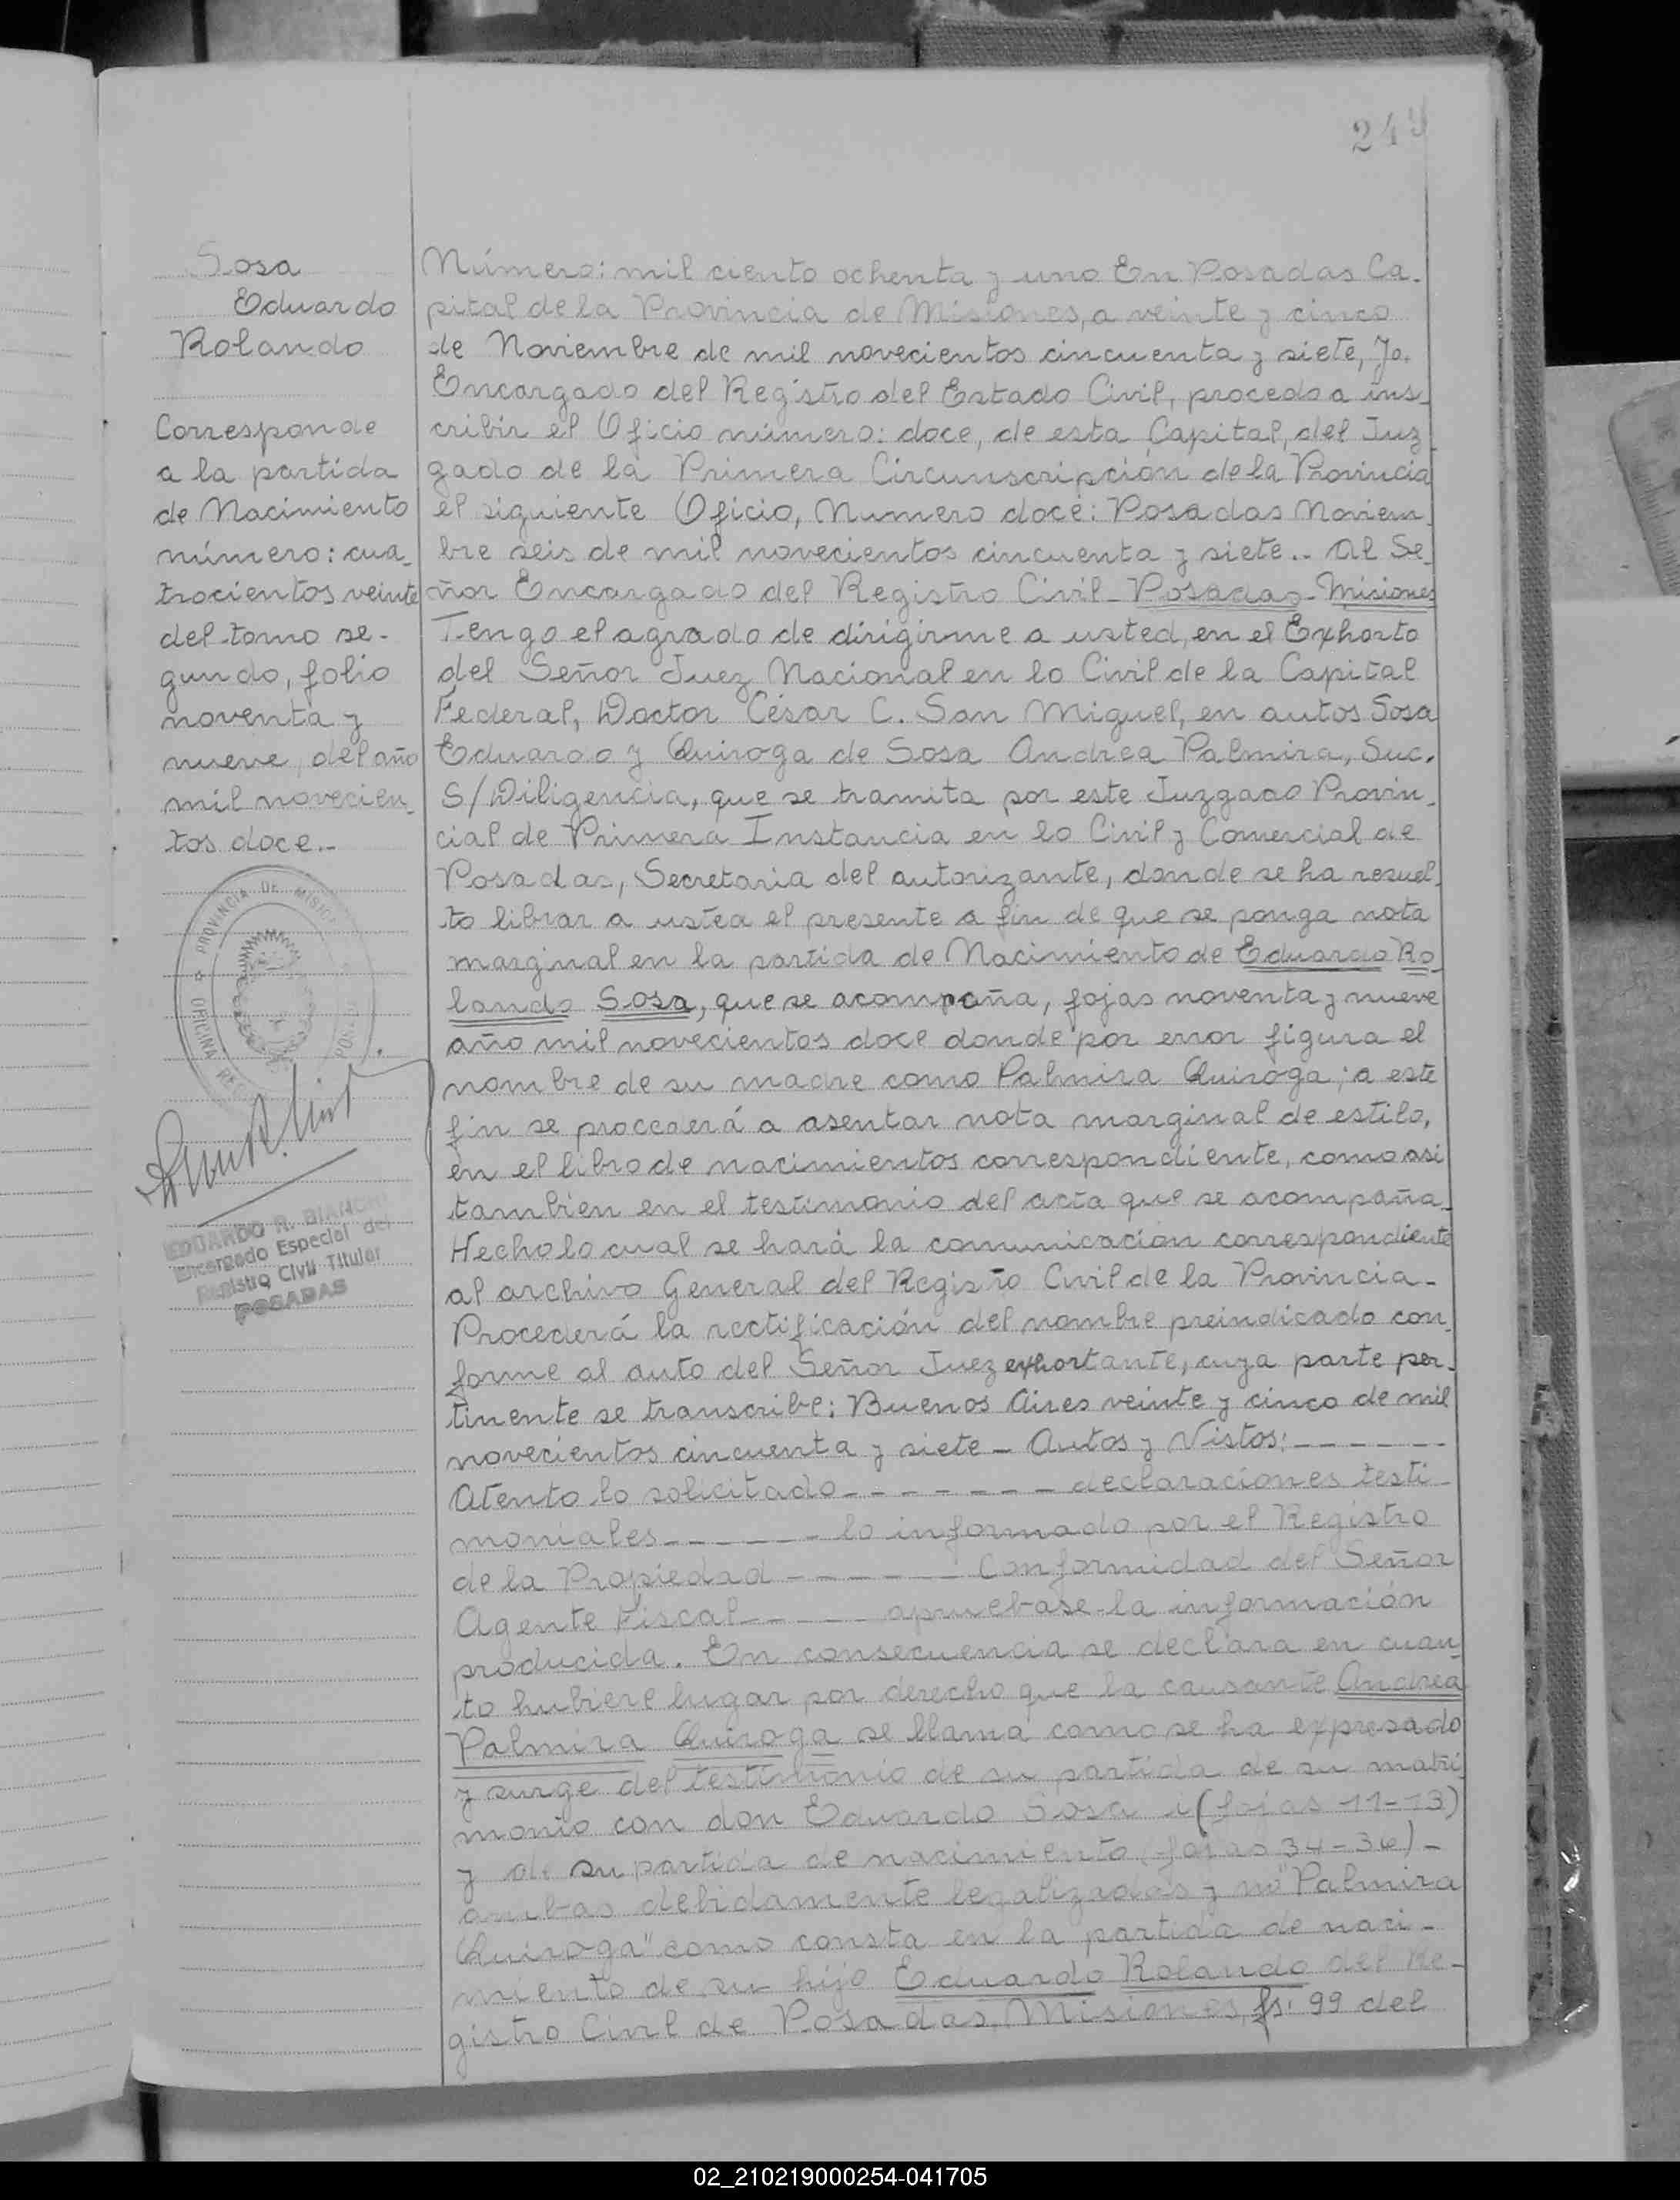 249
Sosa
Eduardo
Rolando
Corresponde
a la partida
de Nacimiento
número: cua_
trocientos veinte
del tomo se-
gundo, folio
noventa y
nueve, del año
mil novecien_
tos doce.-
PROVINCIA DE MISIO
OFICINA REG
EDUARDO R. BIANCHI
Encargado Especial del
Registro Civil Titular
POSADAS
Número: mil ciento ochenta y uno En Posadas Ca.
pital de la Provincia de Misiones, a veinte y cinco
de Noviembre de mil novecientos cincuenta y siete, yo.
Encargado del Registro del Estado Civil, procedo a ins_
cribir el Oficio número: doce, de esta Capital, del Juz_
gado de la Primera Circunscripción de la Provincia
el siguiente Oficio, Numero doce: Posadas Noviem_
bre seis de mil novecientos cincuenta y siete.. Al Se_
ñor Encargado del Registro Civil-Posadas-Misiones
Tengo el agrado de dirigirme a usted, en el Exhorto
del Señor Juez Nacional en lo Civil de la Capital
Federal, Doctor César C. San Miguel, en autos Sosa
Eduardo y Quiroga de Sosa Andrea Palmira, Suc.
S/Diligencia, que se tramita por este Juzgado Provin_
cial de Primera Instancia en lo Civil y Comercial de
Posadas, Secretaria del autorizante, donde se ha resuel_
to librar a usted el presente a fin de que se ponga nota
marginal en la partida de Nacimiento de Eduardo Ro_
lando Sosa, que se acompaña, fojas noventa y nueve
año mil novecientos doce donde por error figura el
nombre de su madre como Palmira Quiroga; a este
fin se procederá a asentar nota marginal de estilo,
en el libro de nacimientos correspondiente, como asi
tambien en el testimonio del acta que se acompaña_
Hecho lo cual se hará la comunicación correspondiente
al archivo General del Registro Civil de la Provincia_
Procederá la rectificación del nombre preindicado con_
forme al auto del Señor Juez exhortante, cuya parte per_
tinente se transcribe: Buenos Aires veinte y cinco de mil
novecientos cincuenta y siete - Autos y Vistos: ------
Atento lo solicitado ------- declaraciones testi-
moniales ------ lo informado por el Registro
de la Propiedad ------ Conformidad del Señor
Agente Fiscal ----- apruebase la información
producida. En consecuencia se declara en cuan_
to hubiere lugar por derecho que la causante Andrea
Palmira Quiroga se llama como se ha expresado
y surge del testimonio de su partida de su matri_
monio con don Eduardo Sosa (fojas 11-13)
y de su partida de nacimiento (fojas 34-36)-
ambas debidamente legalizadas y no "Palmira
Quiroga" como consta en la partida de naci-
miento de su hijo Eduardo Rolando del Re-
gistro Civil de Posadas, Misiones, fs: 99 del
02_210219000254-041705